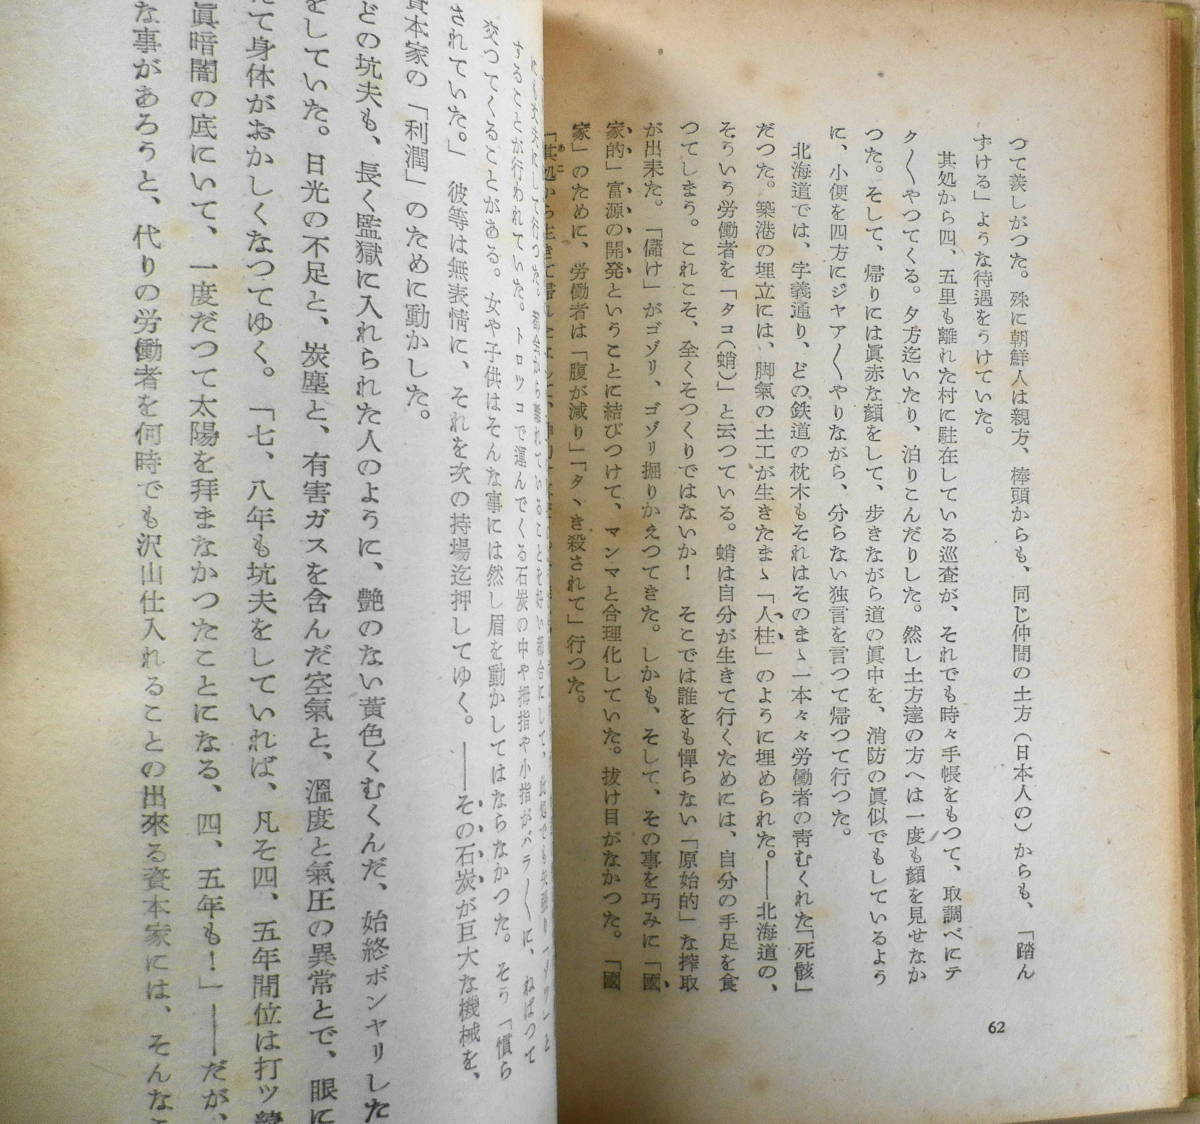 つて羨しがつた。殊に朝鮮人は親方、棒頭からも、同じ仲間の土方（日本人の）からも、「踏ん
ずける」ような待遇をうけていた。
其処から四、五里も離れた村に駐在している巡査が、それでも時々手帳をもつて、取調べにテ
ク〳〵やつてくる。夕方迄いたり、泊りこんだりした。然し土方達の方へは一度も顔を見せなか
つた。そして、帰りには眞赤な顔をして、歩きながら道の眞中を、消防の眞似でもしているよう
に、小便を四方にジヤア〳〵やりながら、分らない独言を言つて帰つて行つた。
北海道では、字義通り、どの鉄道の枕木もそれはそのまゝ一本々々労働者の青むくれた「死骸」
だつた。築港の埋立には、脚氣の土工が生きたまゝ「人柱」のように埋められた。――北海道の、
そういう労働者を「タコ（蛸）」と云つている。蛸は自分が生きて行くためには、自分の手足を食
つてしまう。これこそ、全くそつくりではないか！　そこでは誰をも憚らない「原始的」な搾取
が出来た。「儲け」がゴゾリ、ゴゾリ掘りかえつてきた。しかも、そして、その事を巧みに「國
家的」富源の開発ということに結びつけて、マンマと合理化していた。抜け目がなかつた。「國
家」のために、労働者は「腹が減り」「タヽき殺されて」行つた。
「其処から生きて帰れた
62
することが行われていた。トロツコで運んでくる石炭の中や拇指や小指がバラ〳〵に、ねばつて
交つてくることがある。女や子供はそんな事には然し眉を動かしてはならなかつた。そう「慣ら
されていた。」彼等は無表情に、それを次の持場迄押してゆく。――その石炭が巨大な機械を、
資本家の「利潤」のために動かした。
どの坑夫も、長く監獄に入れられた人のように、艶のない黄色くむくんだ、始終ボンヤリした
をしていた。日光の不足と、炭塵と、有害ガスを含んだ空氣と、溫度と氣圧の異常とで、眼に
て身体がおかしくなつてゆく。「七、八年も坑夫をしていれば、凡そ四、五年間位は打ツ續
眞暗闇の底にいて、一度だつて太陽を拝まなかつたことになる、四、五年も！」――だが、
な事があろうと、代りの労働者を何時でも沢山仕入れることの出來る資本家には、そんなこ